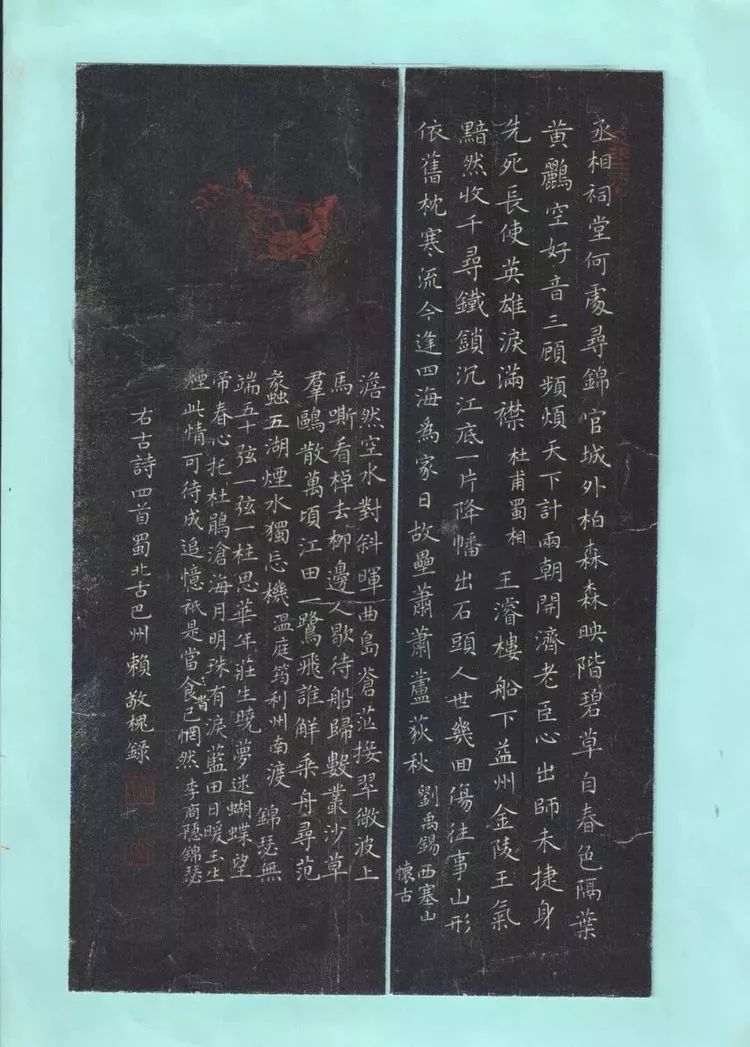 丞相祠堂何處尋錦官城外柏森森映階碧草自春色隔葉
黃鸝空好音三顧頻煩天下計兩朝開濟老臣心出師未捷身
先死長使英雄淚滿襟 杜甫蜀相 王濬樓船下益州金陵王氣
黯然收千尋鐵鎖沉江底一片降幡出石頭人世幾回傷往事山形
依舊枕寒流今逢四海為家日故壘蕭蕭蘆荻秋 劉禹錫 西塞山
懷古
澹然空水對斜暉曲島蒼茫接翠微波上
馬嘶看棹去柳邊人歇待船歸數叢沙草
羣鷗散萬頃江田一鷺飛誰解乘舟尋范
蠡五湖煙水獨忘機 溫庭筠利州南渡 錦瑟無
端五十弦一弦一柱思華年莊生曉夢迷蝴蝶望
帝春心托杜鵑滄海月明珠有淚藍田日暖玉生
煙此情可待成追憶衹是當食時已惘然 李商隱錦瑟
右古詩四首蜀北古巴州賴敬槐錄